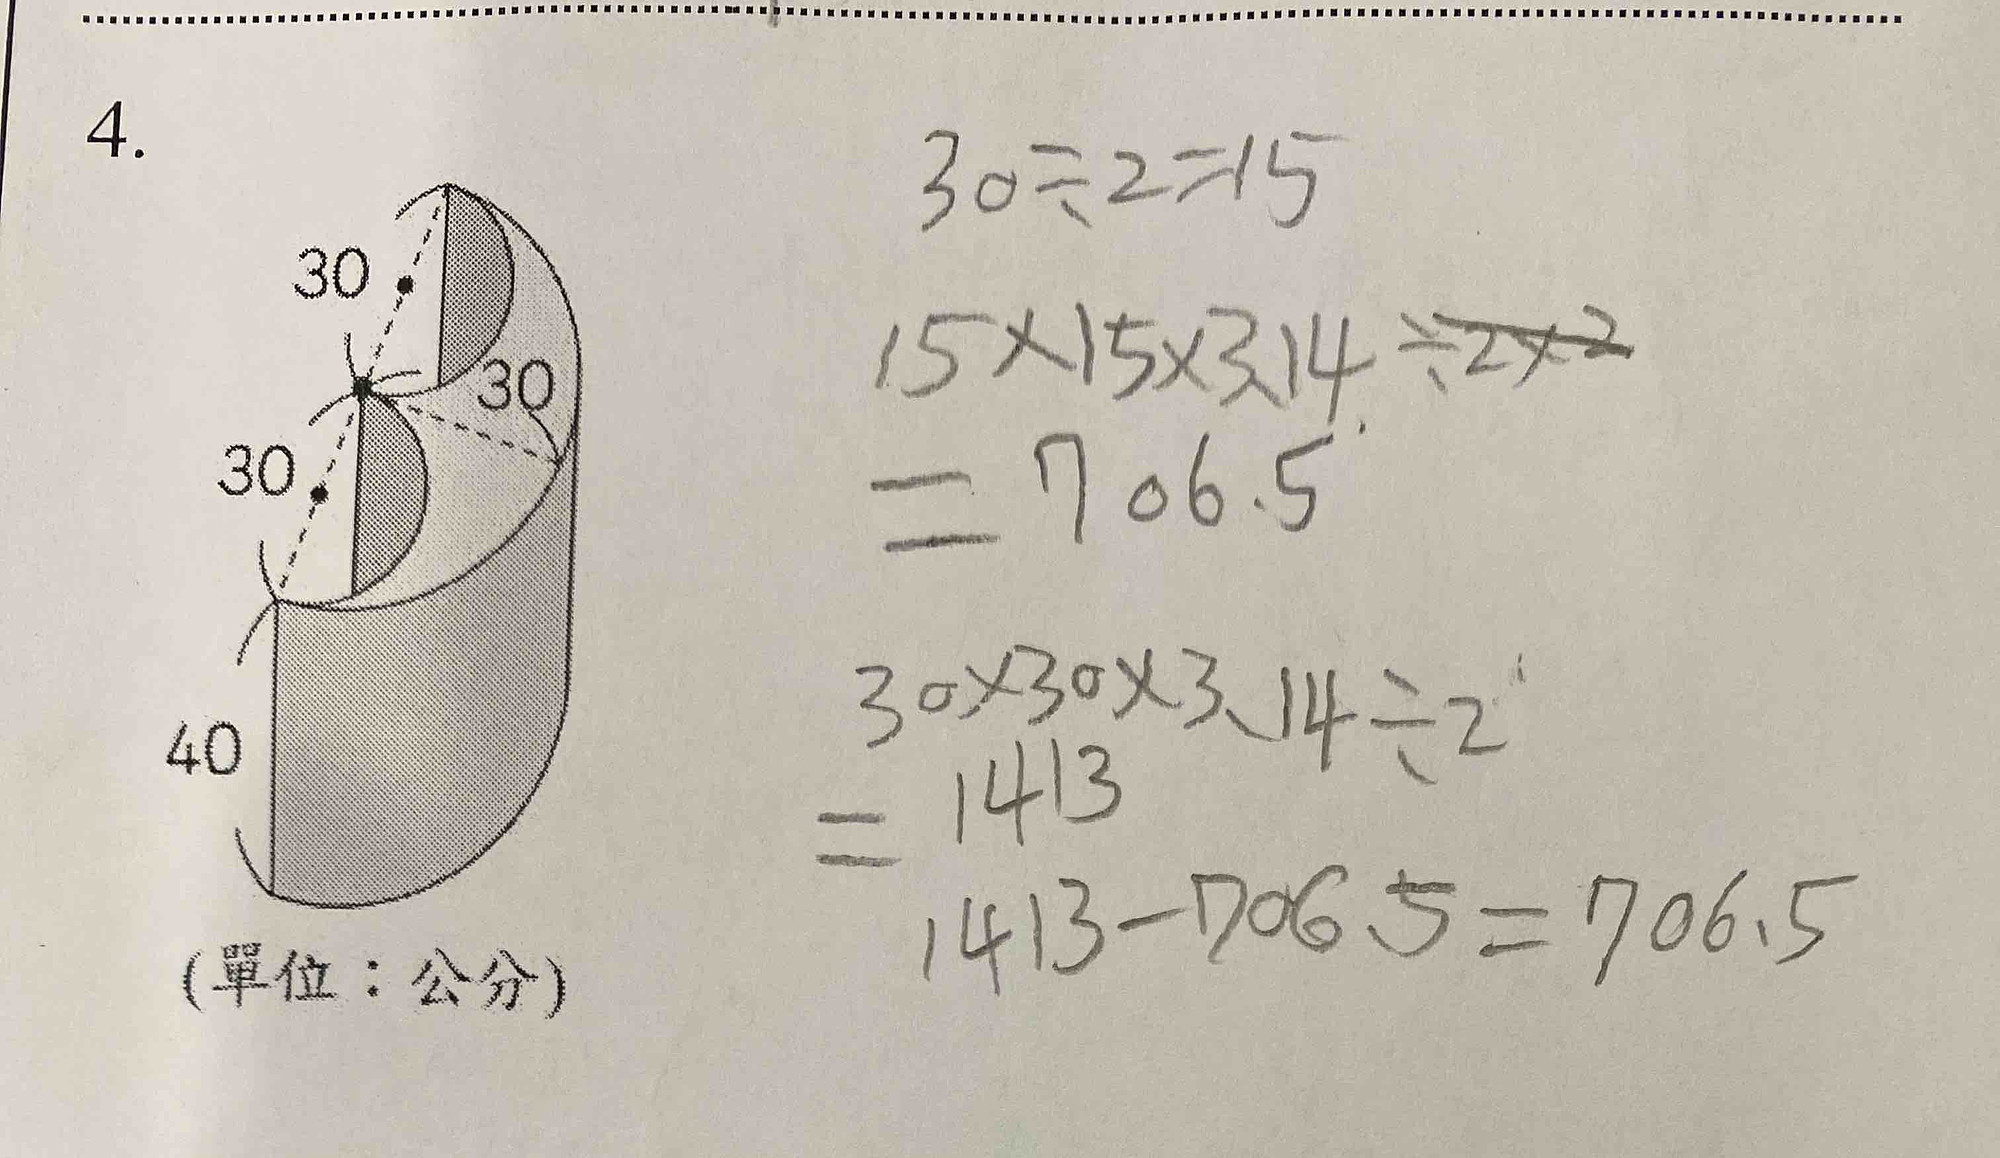 4.
30
30
30
40
(單位：公分)
30÷2=15
15×15×3.14 ÷2×2
=706.5
30×30×3.14÷2
=1413
1413-706.5=706.5